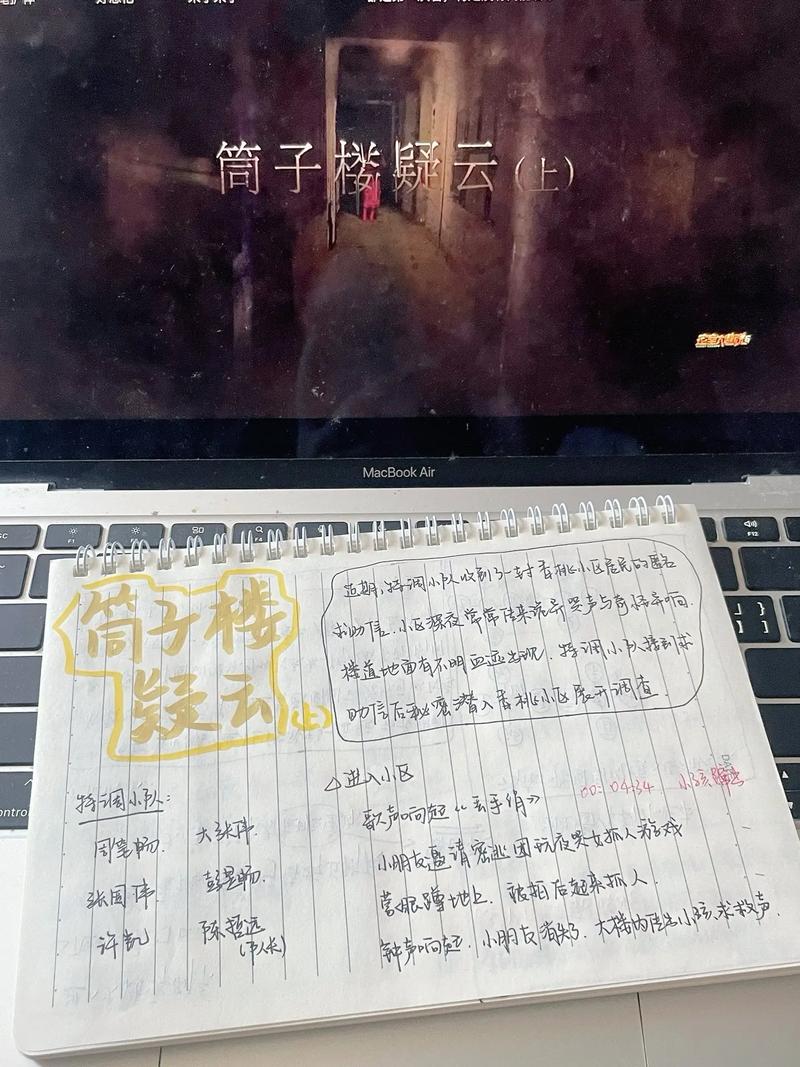 筒子楼疑云(上)
MacBook Air
F1
F4
F12
control
筒子楼
疑云(上)
近期,特调小队收到了一封香桃小区居民的匿名
求助信。小区深夜常常传来诡异哭声与奇怪异响.
楼道地面有不明血迹出现.特调小队接到求
助信后秘密潜入香桃小区展开调查.
特调小队:
周笔畅 大张伟
张国伟 彭昱畅
许凯 陈哲远
△进入小区
歌声响起《丢手绢》 00:04:34 小孩
小朋友邀请密逃团玩夜哭女抓人游戏
蒙眼蹲地上. 被抓后起来抓人.
钟声响起.小朋友消失了.大楼内传出小孩求救声.